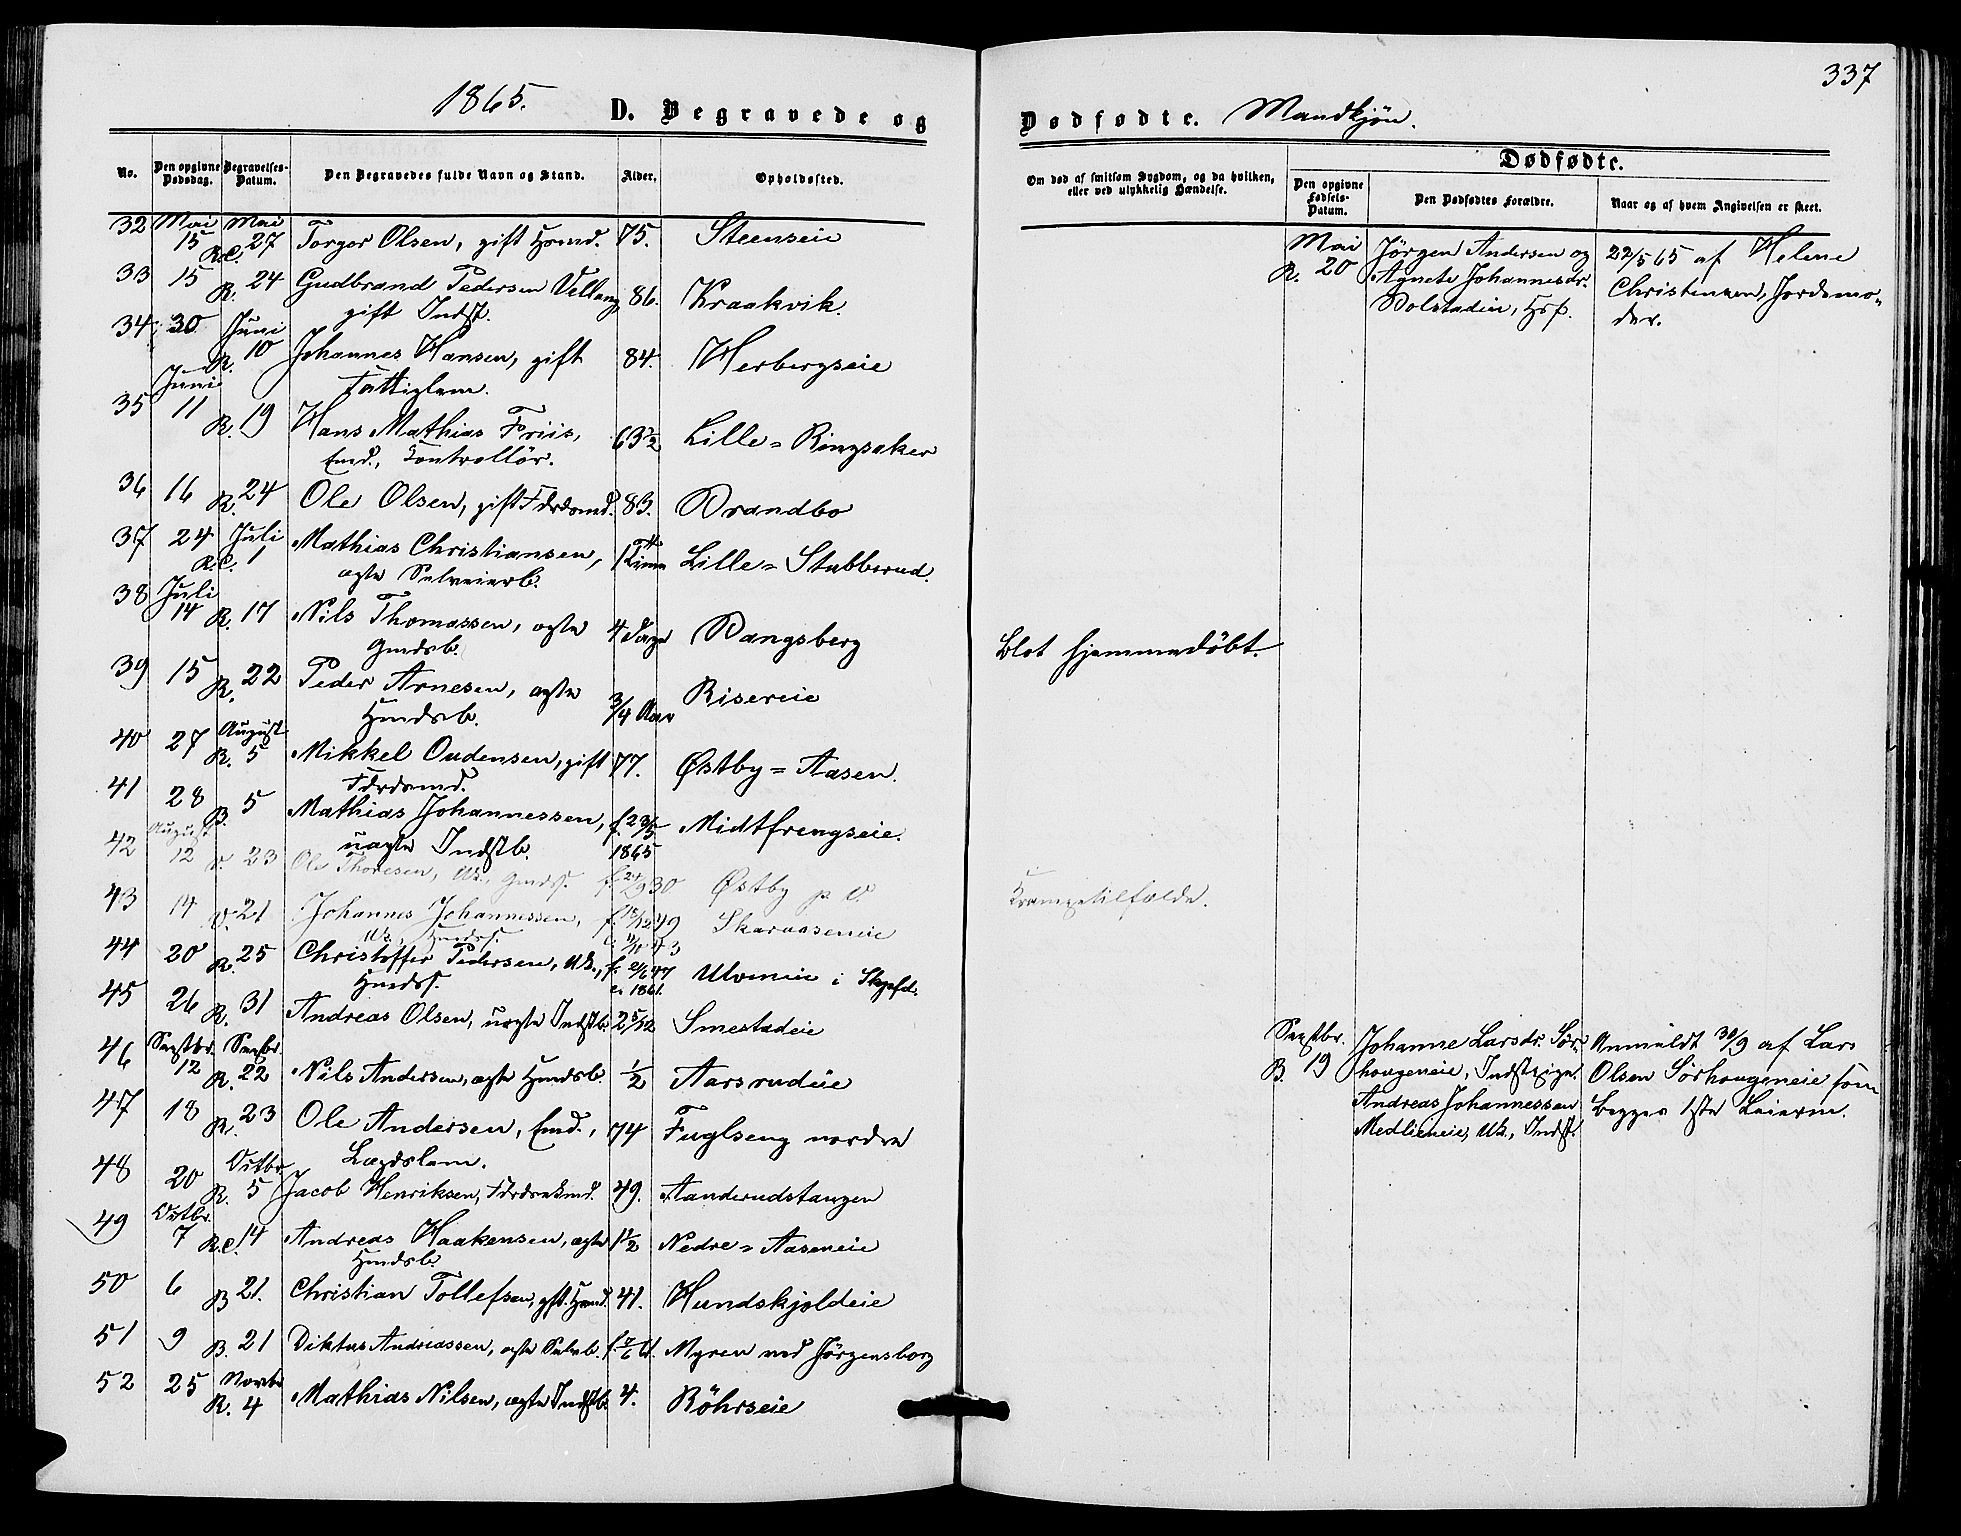 1865.
D. Begravede og
No.
Den opgivne Dødsdag.
Begravelses-Datum.
Den Begravedes fulde Navn og Stand.
Alder.
Opholdssted.
32 Mai 15 Mai R.C. 27 Torger Olsen, gift Hsmd. 75. Steenseie
33 15 R. 24 Gudbrand Pedersen Vellang 86. Kraakvik.
gift Indst.
34 30 Juni R. 10 Johannes Hansen, gift 84. Herbergseie
Fattiglem.
35 Juni 11 R. 19 Hans Mathias Friis, 63½ Lille=Ringsaker
Emd., Controllör.
36 16 R. 24 Ole Olsen, gift Fdrdsmd. 83. Brandbo
37 24 Juli R.C. 1 Mathias Christiansen, 1 Time Lille=Stubberud.
ægte Selveierb.
38 Juli 14 R. 17 Nils Thomassen, ægte 4 Dage Bangsberg
Gmdsb.
39 15 R. 22 Peder Arnesen, ægte 3/4 Aar Risereie
Hmdsb.
40 27 August R. 5 Mikkel Oudensen, gift 77. Østby=Aasen.
Fdrdsmd.
41 28 B. 5 Mathias Johannessen, f. 23/5 1865 Midtfrengseie.
uægte Indstb.
42 August 12 V. 23 Ole Thoresen, Uk., Gmdss. f. 24/9 30 Østby p. V.
43 14 V. 21 Johannes Johannessen, f. 18/12 49 Skaraaseneie
Uk., Hmdss.
44 20 R. 25 Christoffer Pedersen, Uk., f. 2/6 47 Ulveneie i Skpfd.
Hmdss. c. 1861.
45 26 R. 31 Andreas Olsen, uægte Indstb. 2 5/12 Smestadeie
46 Septbr. 12 Septbr. R. 22 Nils Andersen, ægte Hmdsb. ½ Aarsrudeie
47 18 R. 23 Ole Andersen, Emd., 74 Fuglseng nordre
Lægdslem.
48 20 Octbr R. 5 Jacob Henriksen, Fdrdsmd. 49. Aanderudstangen
49 Octbr. 7 R.C. 14 Andreas Haakensen, ægte 1½ Nedre=Aaseneie
Hmdsb.
50 6 B 21. Christian Tollefsen, gft. Hsmd. 41. Hundskjoldeie
51 9 B. 21 Diktus Andreassen, ægte Selvb. f. 7/6 61. Myren ved Jörgensborg
52 25 Novbr R. 4 Mathias Nilsen, ægte Indstb. 4. Röhrseie
337
Dødfødte. Mandkjön.
Om død af smitsom Sygdom, og da hvilken,
eller ved ulykkelig Hændelse.
Dødfødte.
Den opgivne Fødsels-Datum.
Den Dødfødtes Forældre.
Naar og af hvem Angivelsen er skeet.
Mai R. 20 Jörgen Andersen og 22/5 65 af Helene
Agnete Johannesdr. Christensen, Jordemo-
Bolstadeie, Hsf. der.
Blot hjemmedöbt.
Krampetilfælde.
Septbr. B. 19 Johanne Larsdr. Sör- Anmeldt 30/9 af Lars
hougeneie, Indstpige. Olsen Sörhougeneie som
Andreas Johannessen begges 1ste Leierm.
Medlieneie, Uk., Indst.